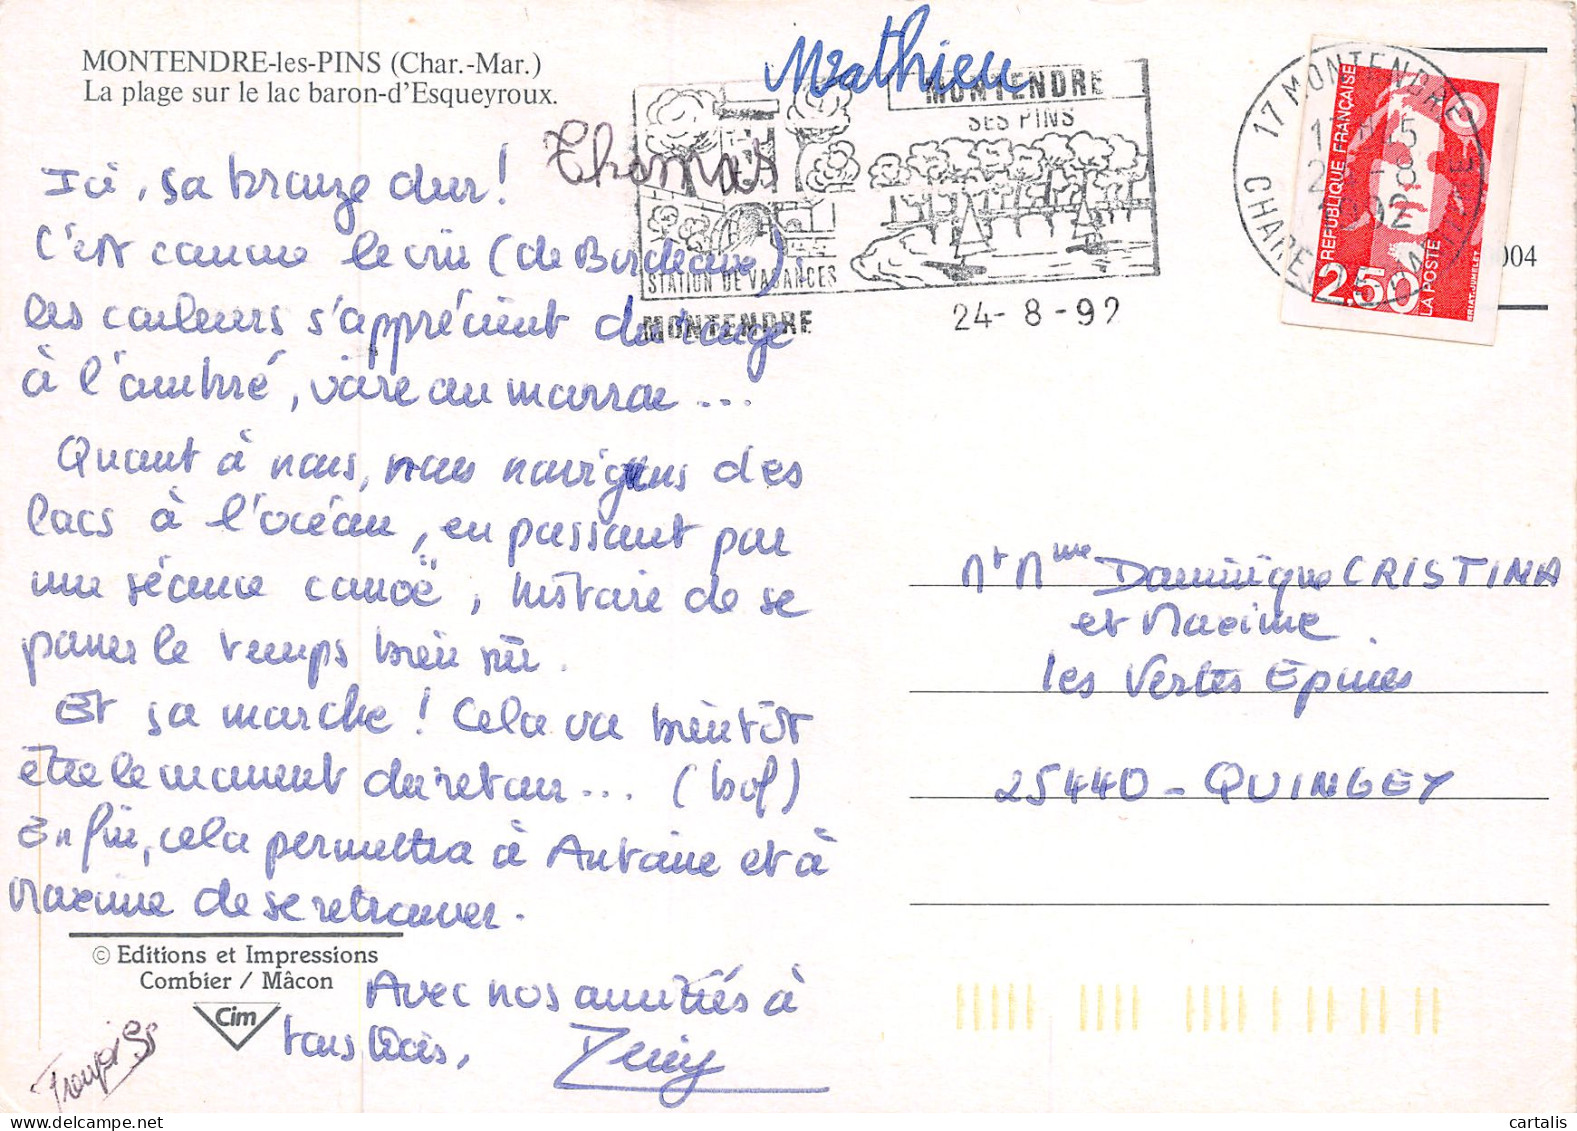 MONTENDRE-les-PINS (Char.-Mar.)
La plage sur le lac baron-d'Esqueyroux.
Mathieu
Thomas
MONTENDRE
SES PINS
STATION DE VACANCES
MONTENDRE
24-8-92
17 MONTENDRE
RÉPUBLIQUE FRANÇAISE
2,50
LA POSTE
004
Ici, sa bronze dur !
C'est comme le vin (de Bordeaux),
les couleurs s'apprécient du rouge
à l'ambré, voire au marron ...
Quant à nous, nous naviguons des
lacs à l'océan, en passant par
une séance canoë, histoire de se
paner le temps bien sûr.
Et sa marche ! Cela va bientôt
être le moment du retour ... (bof)
Enfin, cela permettra à Antoine et à
Maxime de se retrouver.
© Editions et Impressions
Combier / Mâcon
Cim
Avec nos amitiés à
tous trois,
Françoise
Mr Mme Dominique CRISTINA
et Maxime
les Vertes Epines
25440 - QUINGEY
cartalis